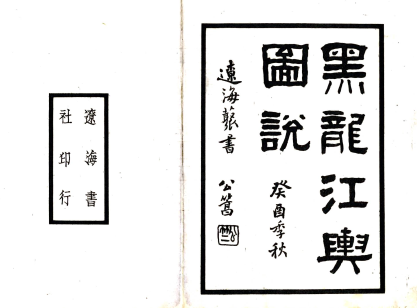 黑龍江輿
圖說
癸酉季秋
遼海叢書
公篙
遼海書
社印行